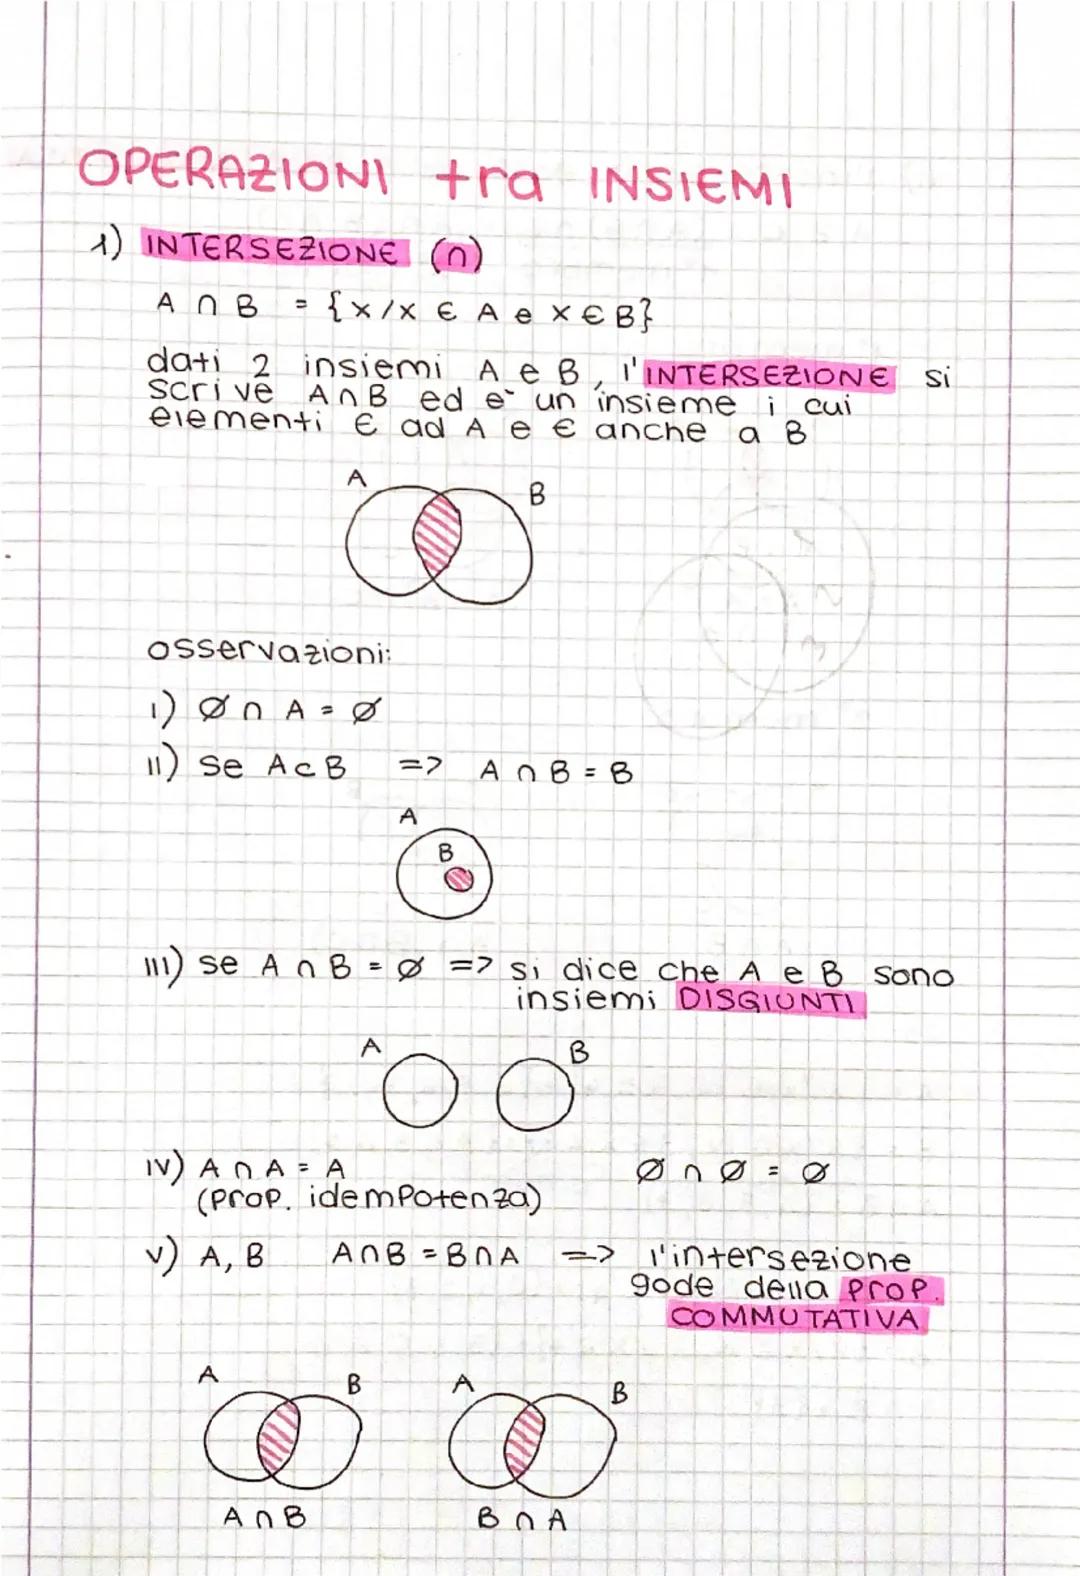 OPERAZIONI tra INSIEMI
1) INTERSEZIONE (∩)
A ∩ B = {x/x ∈ A e x ∈ B}
dati 2 insiemi A e B, l'INTERSEZIONE si
scrive A∩B ed è un insieme i cui
elementi ∈ ad A e ∈ anche a B
A B
osservazioni:
I) Ø ∩ A = Ø
II) se A⊂B => A ∩ B = B
A
B
III) se A ∩ B = Ø => si dice che A e B sono
insiemi DISGIUNTI
A B
IV) A ∩ A = A Ø ∩ Ø = Ø
(prop. idempotenza)
V) A, B A∩B = B∩A => l'intersezione
gode della prop.
COMMUTATIVA
A B A B
A∩B B∩A